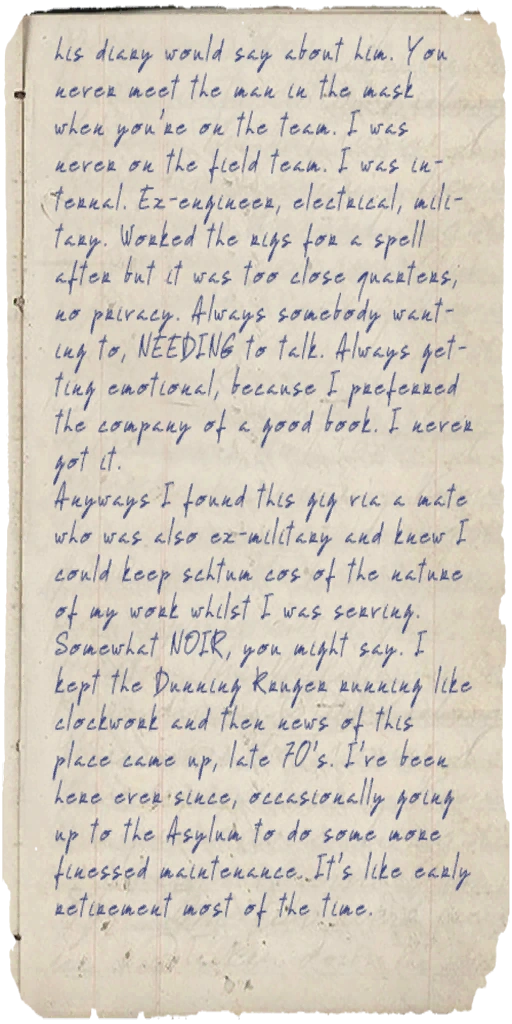 his diary would say about him. You
never meet the man in the mask
when you're on the team. I was
never on the field team. I was in-
ternal. Ex-engineer, electrical, mili-
tary. Worked the rigs for a spell
after but it was too close quarters,
no privacy. Always somebody want-
ing to, NEEDING to talk. Always get-
ting emotional, because I preferred
the company of a good book. I never
got it.
Anyways I found this gig via a mate
who was also ex-military and knew I
could keep schtum cos of the nature
of my work whilst I was serving.
Somewhat NOIR, you might say. I
kept the Dunning Kruger running like
clockwork and then news of this
place came up, late 70's. I've been
here ever since, occasionally going
up to the Asylum to do some more
finessed maintenance. It's like early
retirement most of the time.